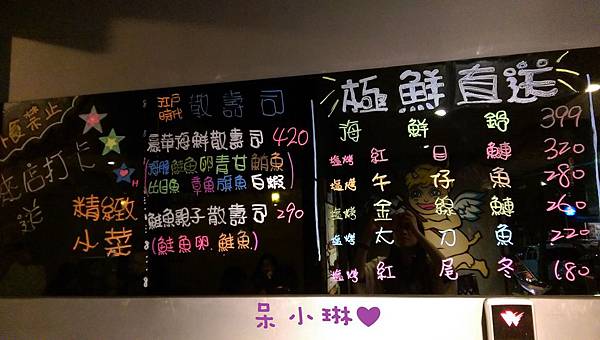 禁止
打卡
送
精緻
小菜
江戶時代 散壽司
豪華海鮮散壽司 420
海膽 鮭魚卵 青甘 鮪魚
比目魚 章魚 旗魚 白蝦
鮭魚親子散壽司 290
(鮭魚卵.鮭魚)
極鮮直送
海鮮鍋 399
塩烤 紅目鰱 320
塩烤 午仔魚 280
塩烤 金線鰱 260
塩烤 太刀魚 220
塩烤 紅尾冬 180
呆小琳